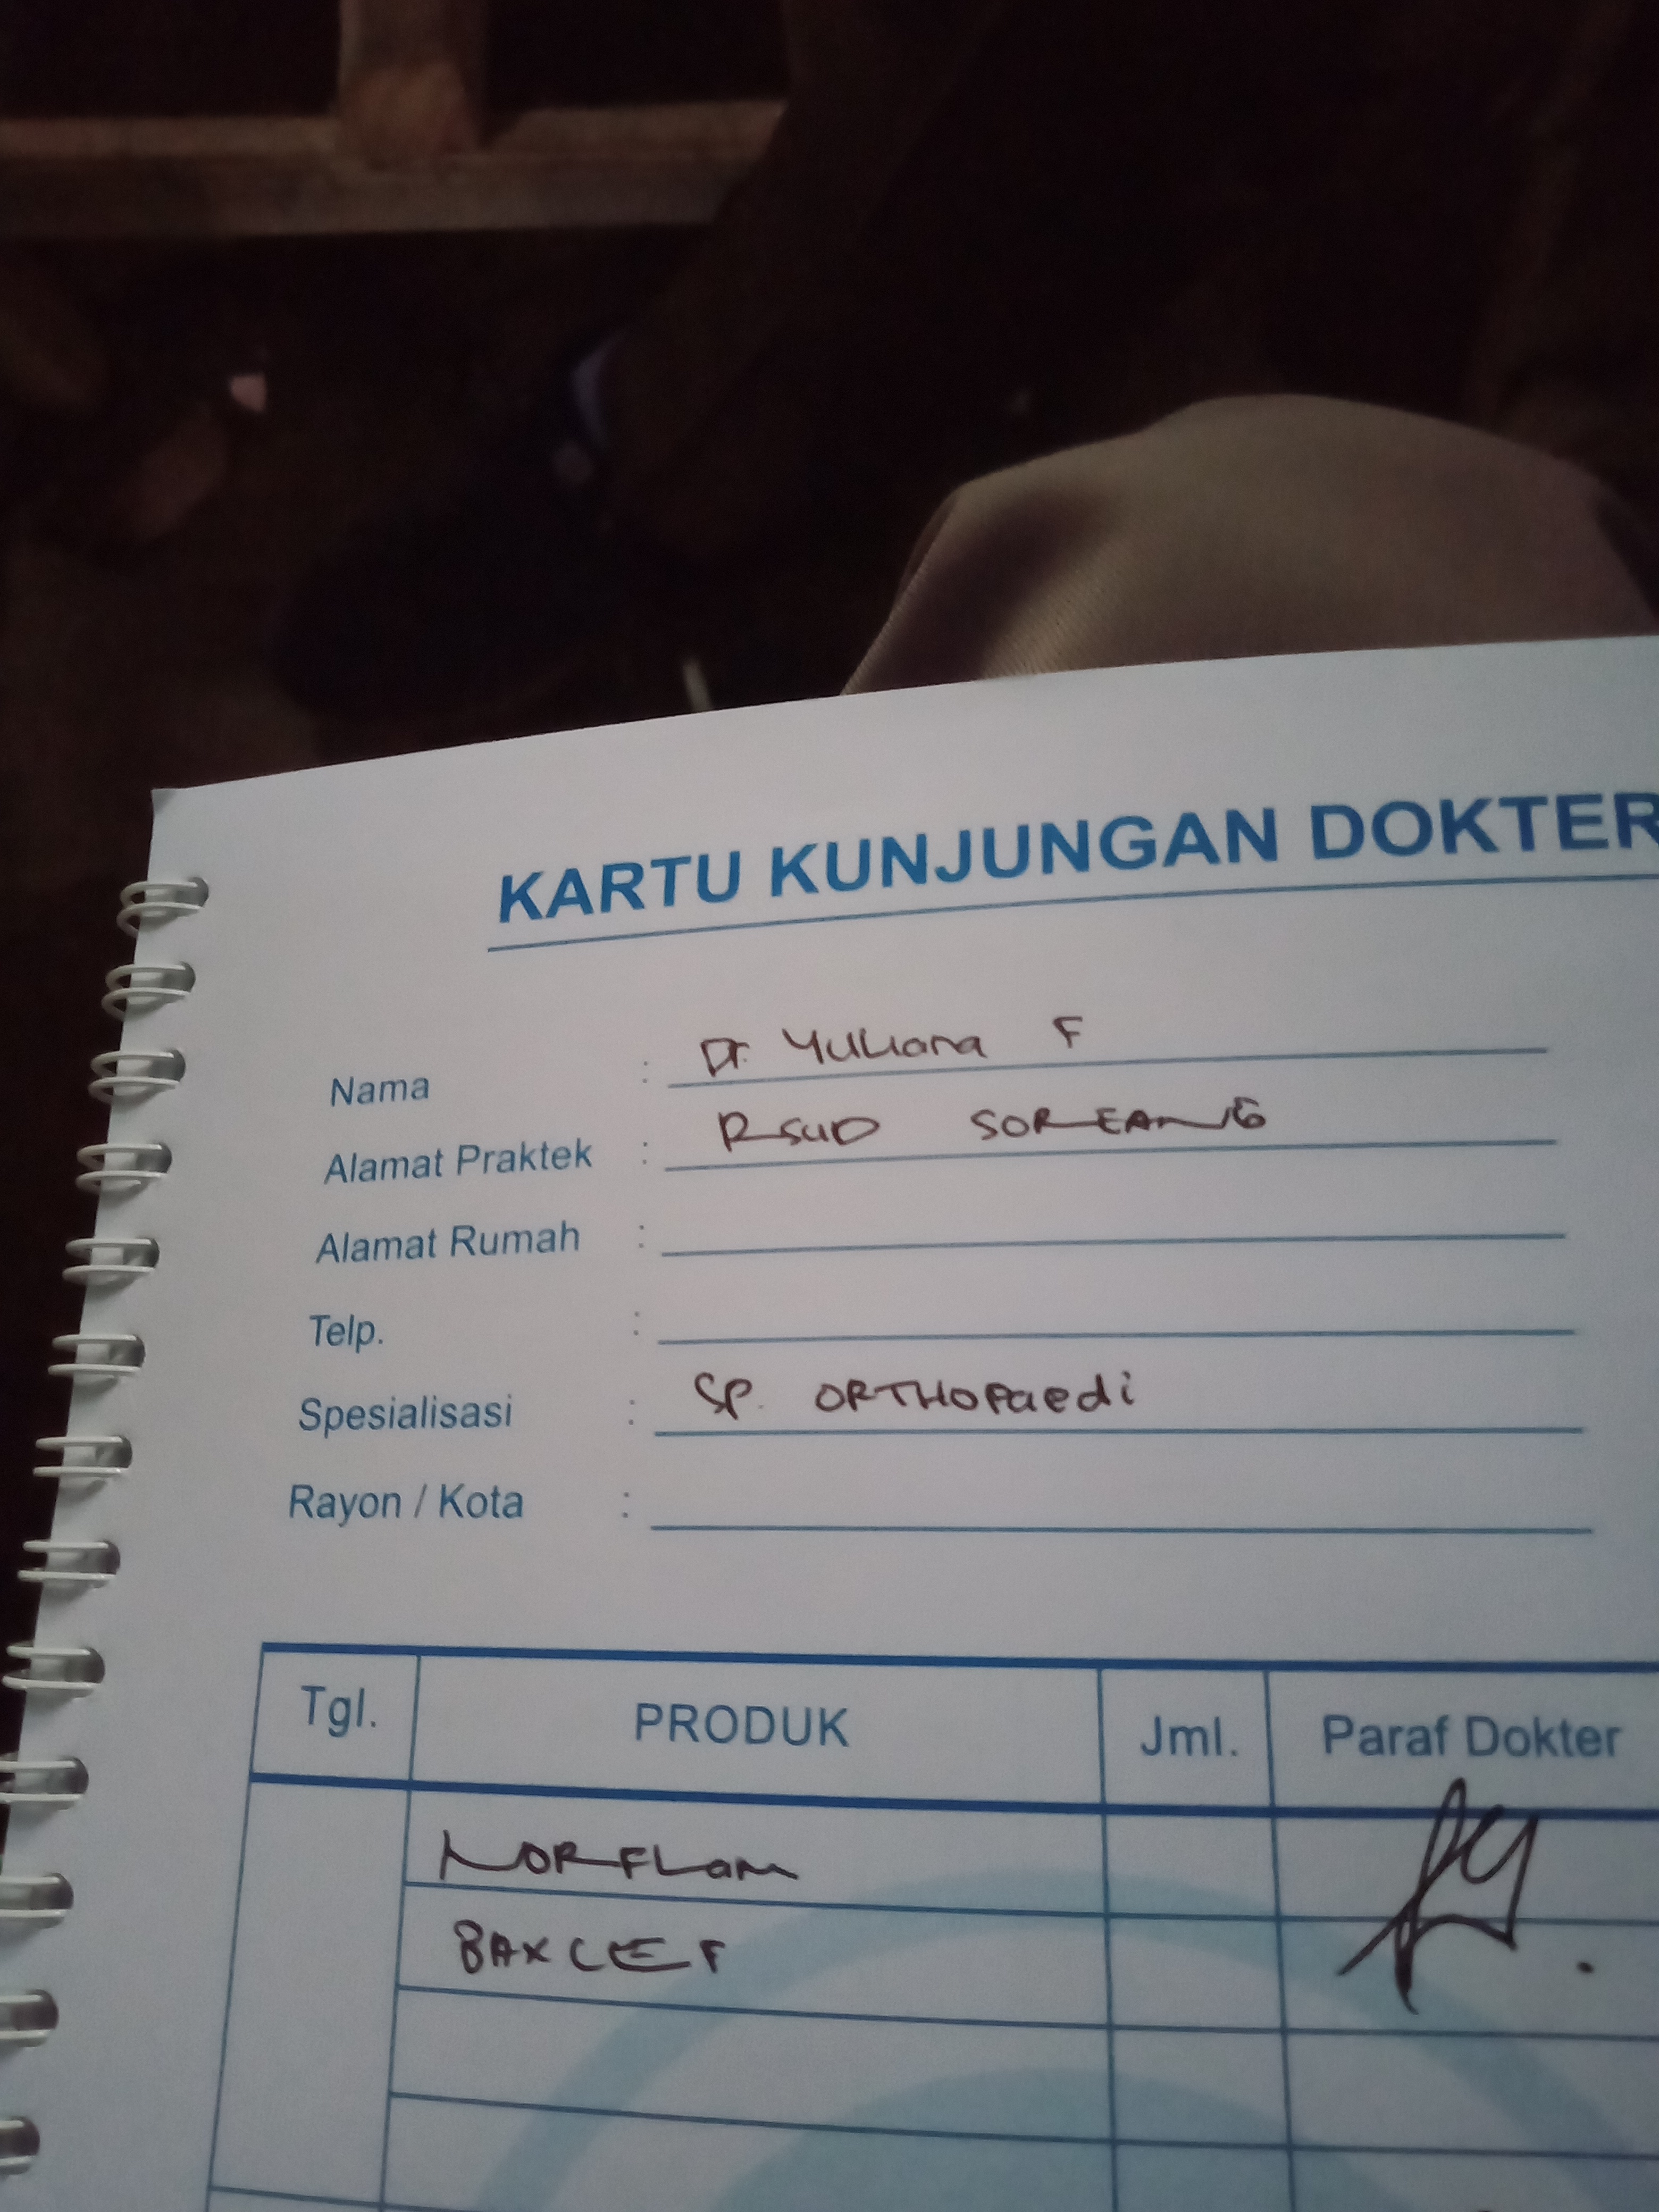 KARTU KUNJUNGAN DOKTER
Nama : Dr. Yuliana F
Alamat Praktek : RSUD SOREANG
Alamat Rumah :
Telp. :
Spesialisasi : SP. ORTHOPaedi
Rayon / Kota :
Tgl. PRODUK Jml. Paraf Dokter
NORFLam
BAXCEF